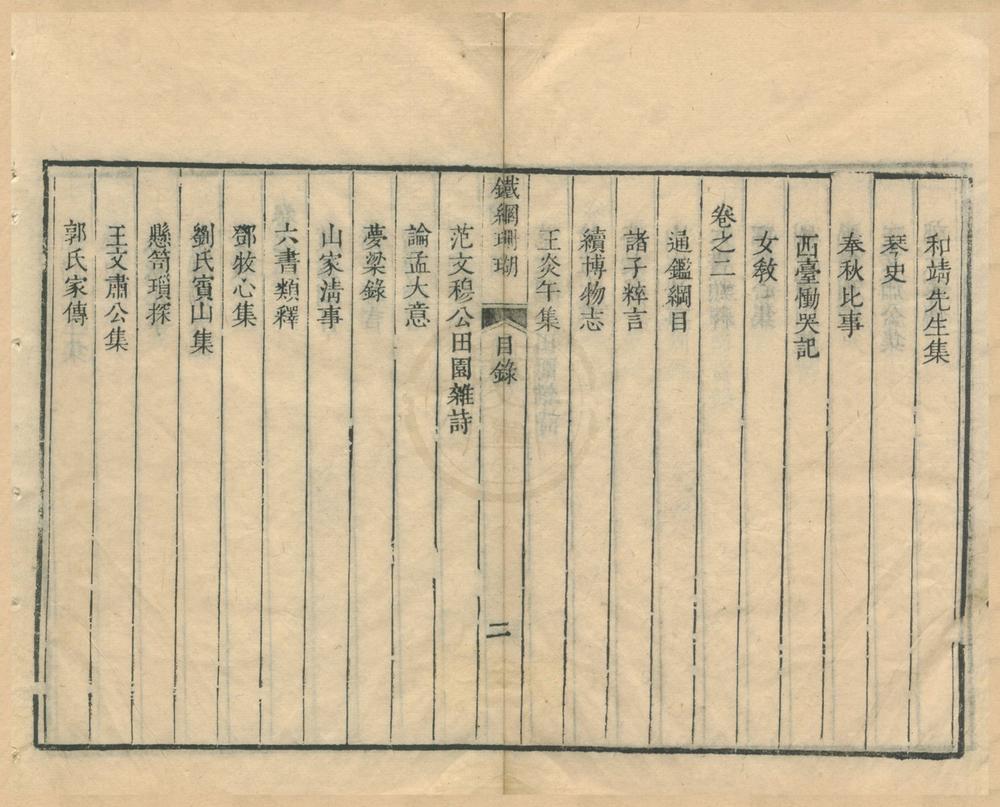 和靖先生集
琴史
奉秋比事
西臺慟哭記
女敎
卷之二
通鑑綱目
諸子粹言
續博物志
王炎午集
鐵網珊瑚 目錄 二
范文穆公田園雜詩
論孟大意
夢梁錄
山家淸事
六書類釋
鄧牧心集
劉氏賓山集
懸笥瑣探
王文肅公集
郭氏家傳